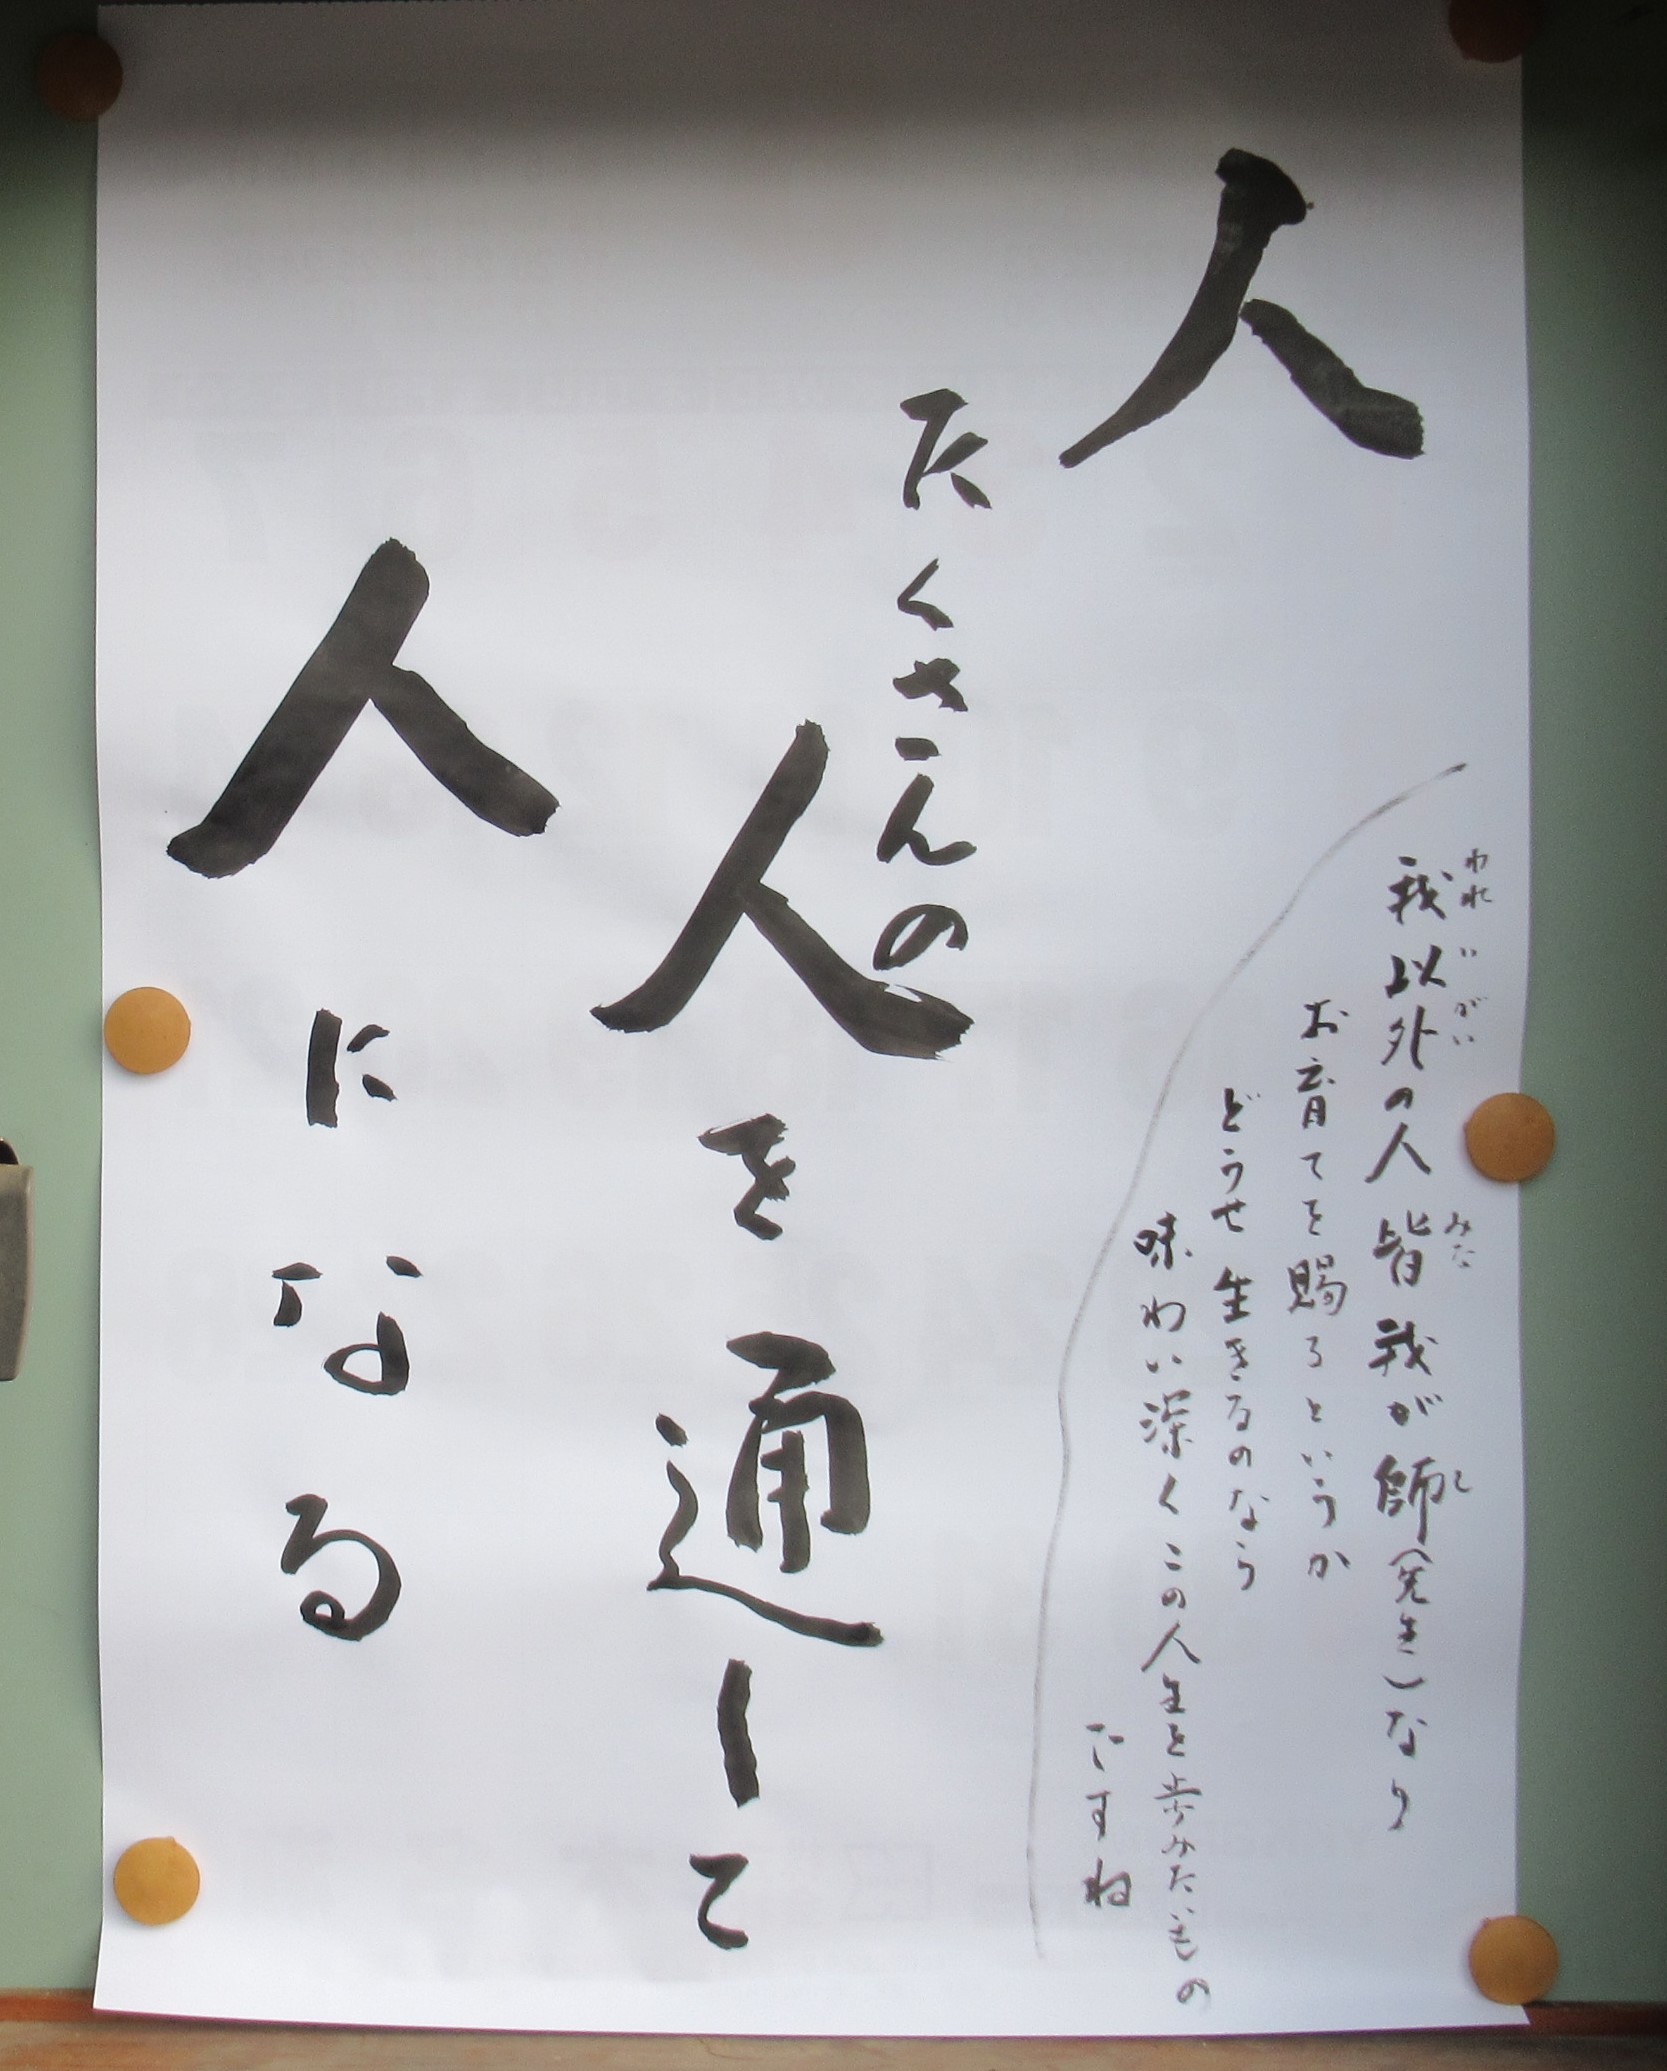 人
たくさんの
人を通して
人になる
我以外の人皆我が師(先生)なり
われ いがい みな し
お育てを賜るというか
どうせ生きるのなら
味わい深くこの人生を歩みたいもの
ですね